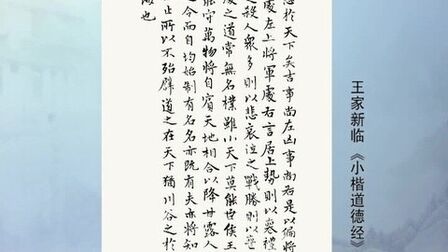 王家新临《小楷道德经》
志於天下矣吉事尚左凶事尚右是以偏將
處左上將軍處右言居上勢則以喪禮
殺人眾多則以悲哀泣之戰勝則以喪
處之道常無名樸雖小天下莫能臣侯王
能守萬物將自賓天地相合以降甘露人
之令而自均始制有名名亦既有夫亦將知
止所以不殆譬道之在天下猶川谷之於
海也